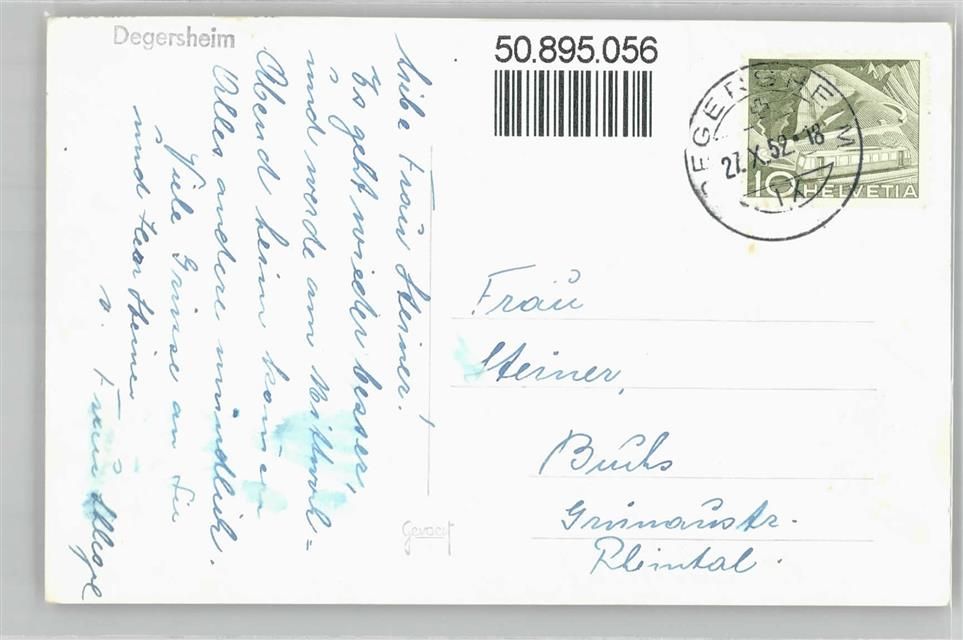 Degersheim
50.895.056
DEGERSHEIM
27.X.52.18
10 HELVETIA
Liebe Frau Steiner!
Es geht wieder besser,
und werde am Mittwoch=
Abend heim komen
Alles andere mündlich.
Viele Grüsse an Sie
und Herr Steiner
v. Frau
Frau
Steiner,
Buchs
Grünaustr.
Rheintal.
Gevaert